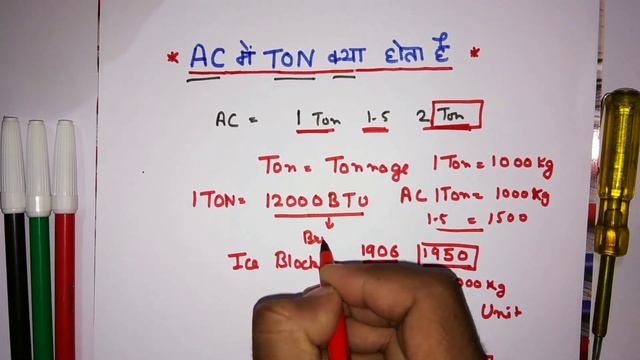 * AC में TON क्या होता है *
AC = 1 Ton 1.5 2 Ton
Ton = Tonnage 1Ton = 1000 kg
1 TON = 12000 BTU AC 1Ton = 1000 kg
1.5 = 1500
Ice 1906 1950
kg
Unit